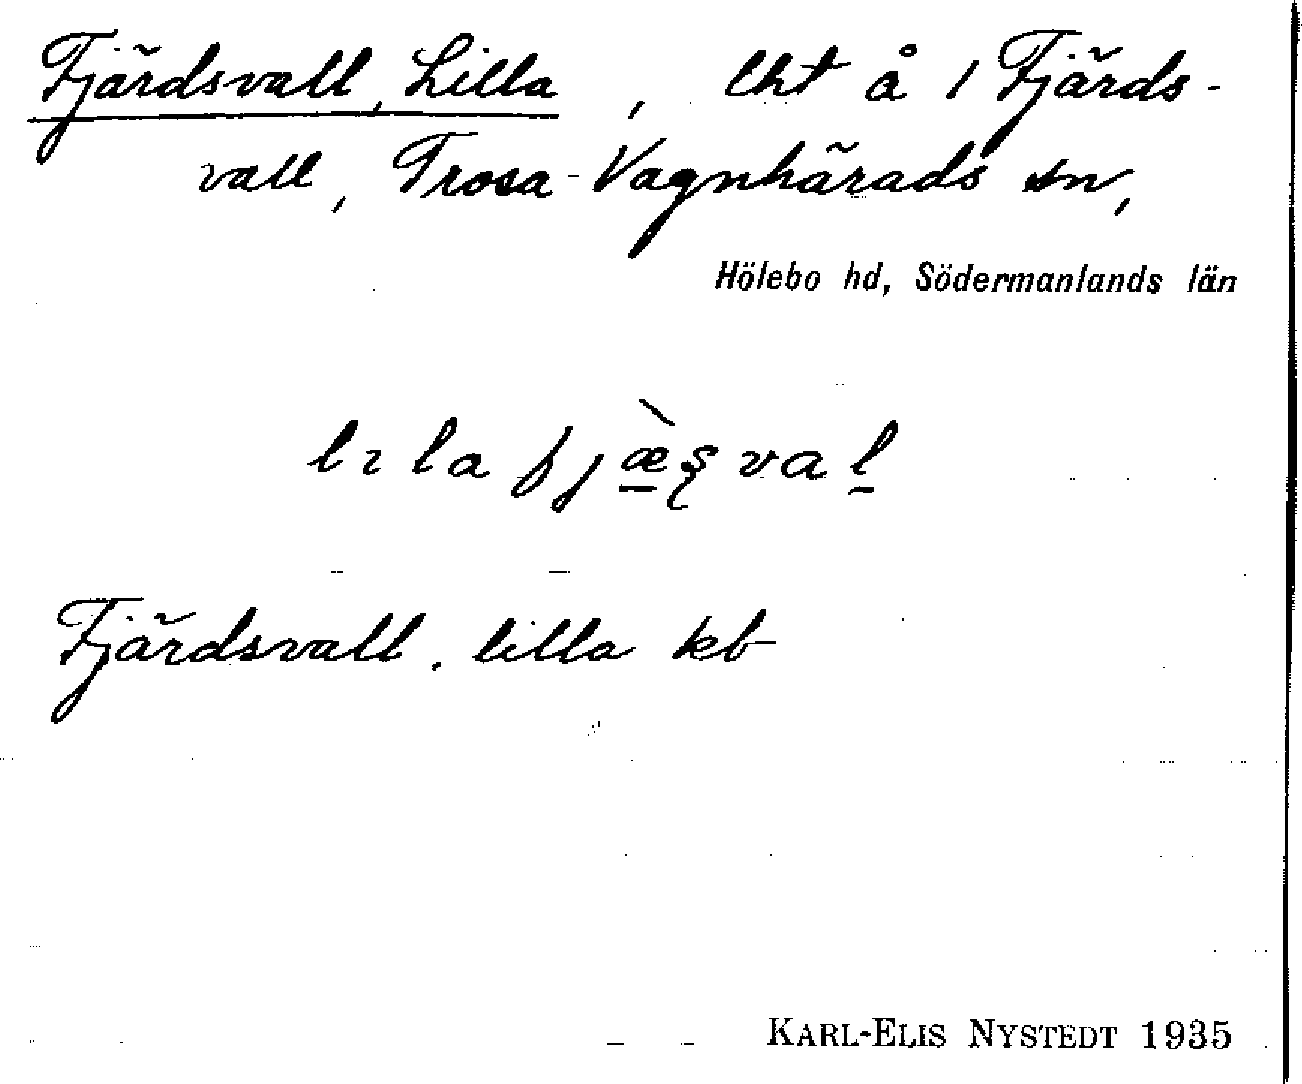 Fjärdsvall, Lilla, lht å 1 Fjärds-
vall, Trosa-Vagnhärads sn,
Hölebo hd, Södermanlands län
lɩla fjæ̱̀ʂvaḻ
Fjärdsvall, lilla kb
KARL-ELIS NYSTEDT 1935